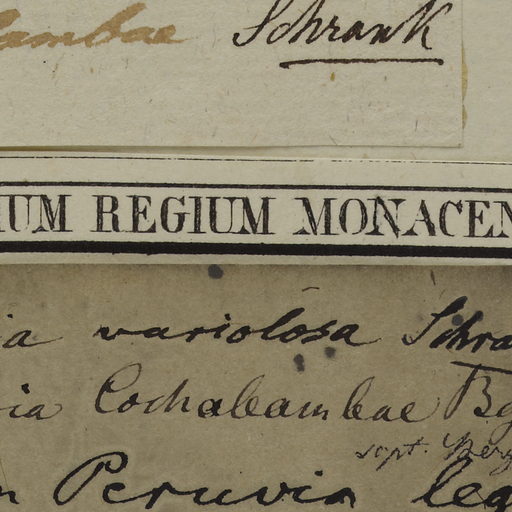 lambae Schrank
IUM REGIUM MONACEN
ia variolosa Schra
ia Cochabambae Bg
sept.
n Peruvia leg